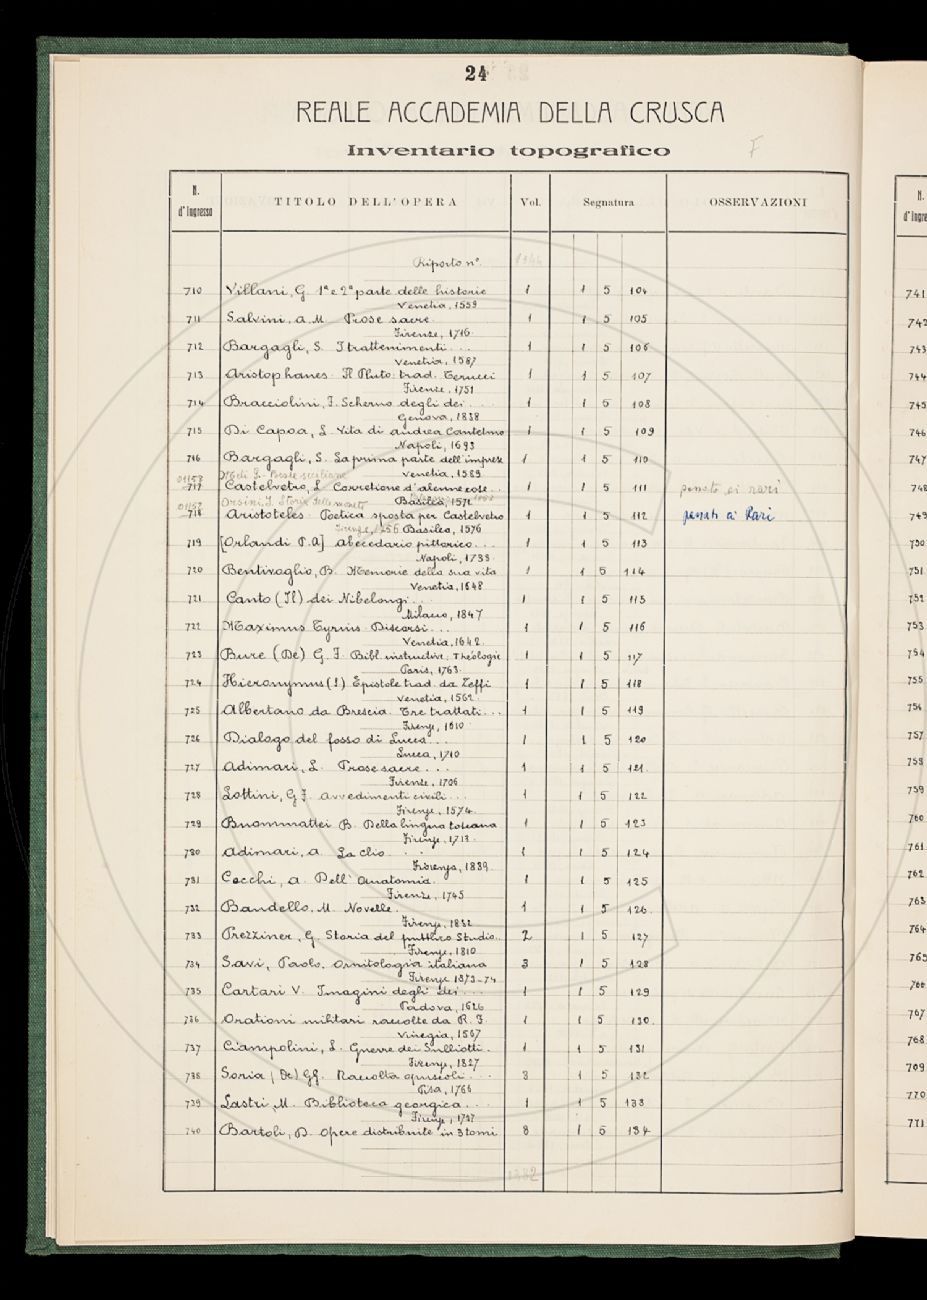 24
REALE ACCADEMIA DELLA CRUSCA
Inventario topografico F
N. d'Ingresso TITOLO DELL'OPERA Vol. Segnatura OSSERVAZIONI
Riporto n° 1344
710 Villani, G. 1ª e 2ª parte delle historie 1 1 5 104
Venetia, 1559
711 Salvini, A. M. Prose sacre. 1 1 5 105
Firenze, 1716.
712 Bargagli, S. I trattenimenti... 1 1 5 106
Venetia, 1587
713 Aristophanes. Il Pluto: trad. Terucci 1 1 5 107
Firenze, 1751
714 Bracciolini, F. Scherno degli dei... 1 1 5 108
Genova, 1838
715 Di Capoa, L. Vita di Andrea Cantelmo 1 1 5 109
Napoli, 1693
716 Bargagli, S. La prima parte dell'imprese 1 1 5 110
Venetia, 1589
01158
717 Castelvetro, L. Correttione d'alcune cose... 1 1 5 111 passato ai rari
Orsini, I. Storia delle monete Basilea, 1572
01157
718 Aristoteles. Poetica sposta per Castelvetro 1 1 5 112 passato ai Rari
Firenze, 1756 Basilea, 1576
719 [Orlandi P.A] Abecedario pittorico... 1 1 5 113
Napoli, 1733
720 Bentivoglio, B. Memorie della sua vita 1 1 5 114
Venetia, 1648
721 Canto (Il) dei Nibelongi... 1 1 5 115
Milano, 1847
722 Maximus Tyrius. Discorsi... 1 1 5 116
Venetia, 1642.
723 Bure (De) G. F. Bibl. instructive. Théologie 1 1 5 117
Paris, 1763.
724 Hieronymus (S.) Epistole trad. da Zeffi 1 1 5 118
Venetia, 1562.
725 Albertano da Brescia. Tre trattati... 1 1 5 119
Firenze, 1610.
726 Dialogo del fosso di Lucca... 1 1 5 120
Lucca, 1710
727 Adimari, L. Prose sacre... 1 1 5 121.
Firenze, 1706
728 Lottini, G. F. Avvedimenti civili... 1 1 5 122
Firenze, 1574.
729 Buommattei B. Della lingua toscana 1 1 5 123
Firenze, 1713.
730 Adimari, A. La Clio. 1 1 5 124
Fiorenza, 1639.
731 Cocchi, A. Dell'Anatomia. 1 1 5 125
Firenze, 1745
732 Bandello, M. Novelle. 1 1 5 126.
Firenze, 1832
733 Prezziner, G. Storia del pubblico Studio.. 2 1 5 127
Firenze, 1810
734 Savi, Paolo. Ornitologia italiana 3 1 5 128
Firenze 1873-74
735 Cartari V. Imagini degli dei... 1 1 5 129
Padova, 1626
736 Orationi militari raccolte da R. F. 1 1 5 130.
Vinegia, 1557
737 Ciampolini, L. Guerre dei Sulliotti. 1 1 5 131
Firenze, 1827
738 Soria (De) GG. Raccolta opuscoli... 3 1 5 132
Pisa, 1766
739 Lastri, M. Biblioteca georgica... 1 1 5 133
Firenze, 1787
740 Bartoli, D. Opere distribuite in 3 tomi 8 1 5 134
1382
N.
d'Ingre
741
742
743
744
745
746
747
748
749
750
751
752
753
754
755
756
757
758
759
760
761
762
763
764
765
766
767
768
769
770
771